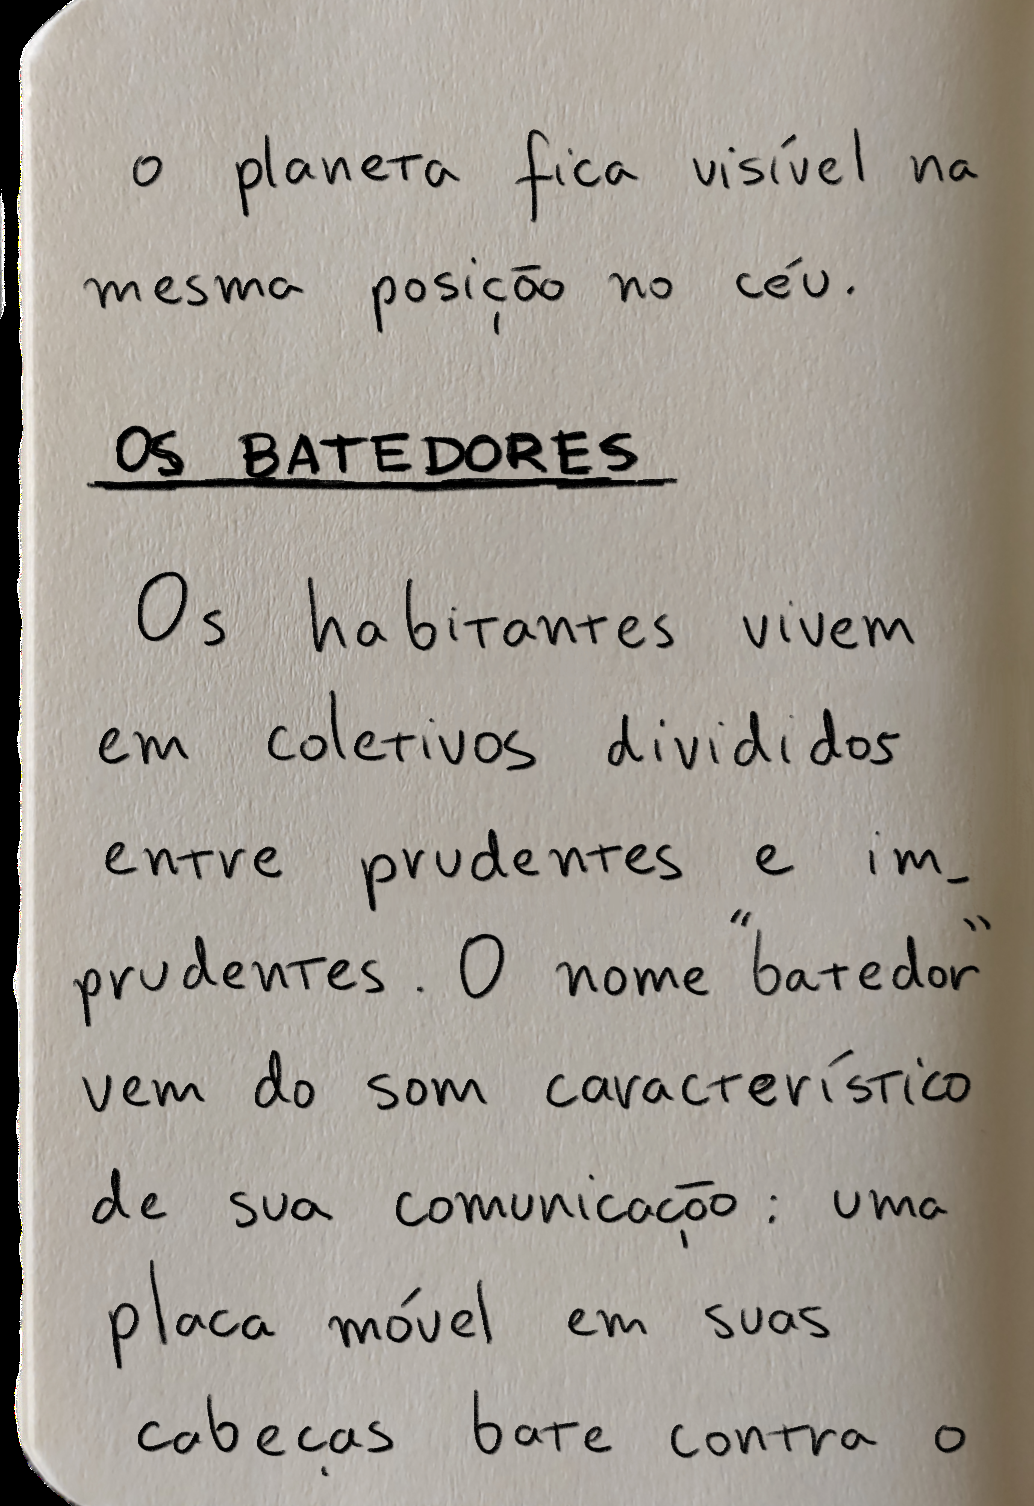 o planeta fica visível na
mesma posição no céu.
OS BATEDORES
Os habitantes vivem
em coletivos divididos
entre prudentes e im_
prudentes. O nome "batedor"
vem do som característico
de sua comunicação: uma
placa móvel em suas
cabeças bate contra o